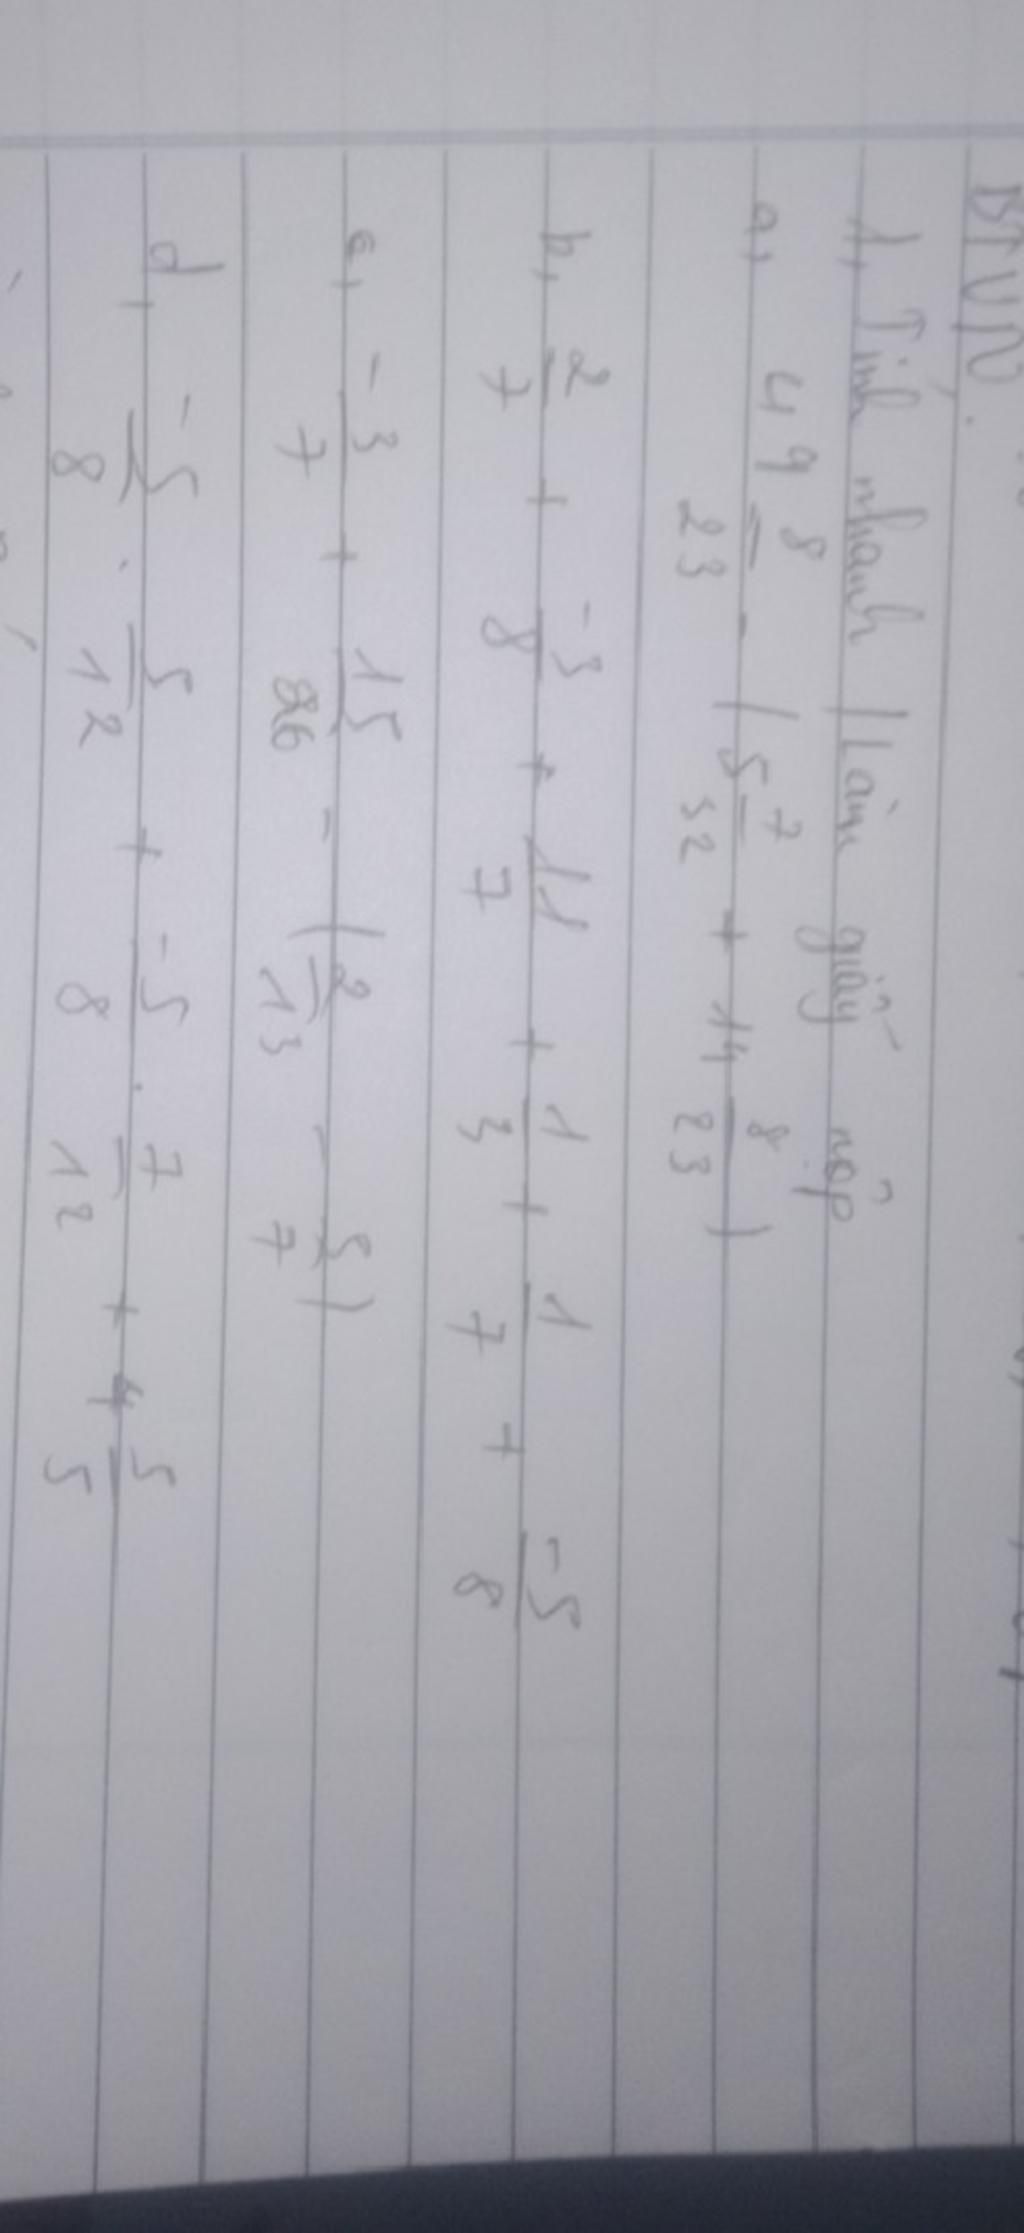 BTVN.
1, Tính nhanh (Làm giấy nộp
a, 49 8/23 - (5 7/32 + 14 8/23)
b, 2/7 + -3/8 + 11/7 + 1/3 + 1/7 + -5/8
c, -3/7 + 15/26 - (2/13 - 5/7)
d, -5/8 . 5/12 + -5/8 . 7/12 + 4 5/5